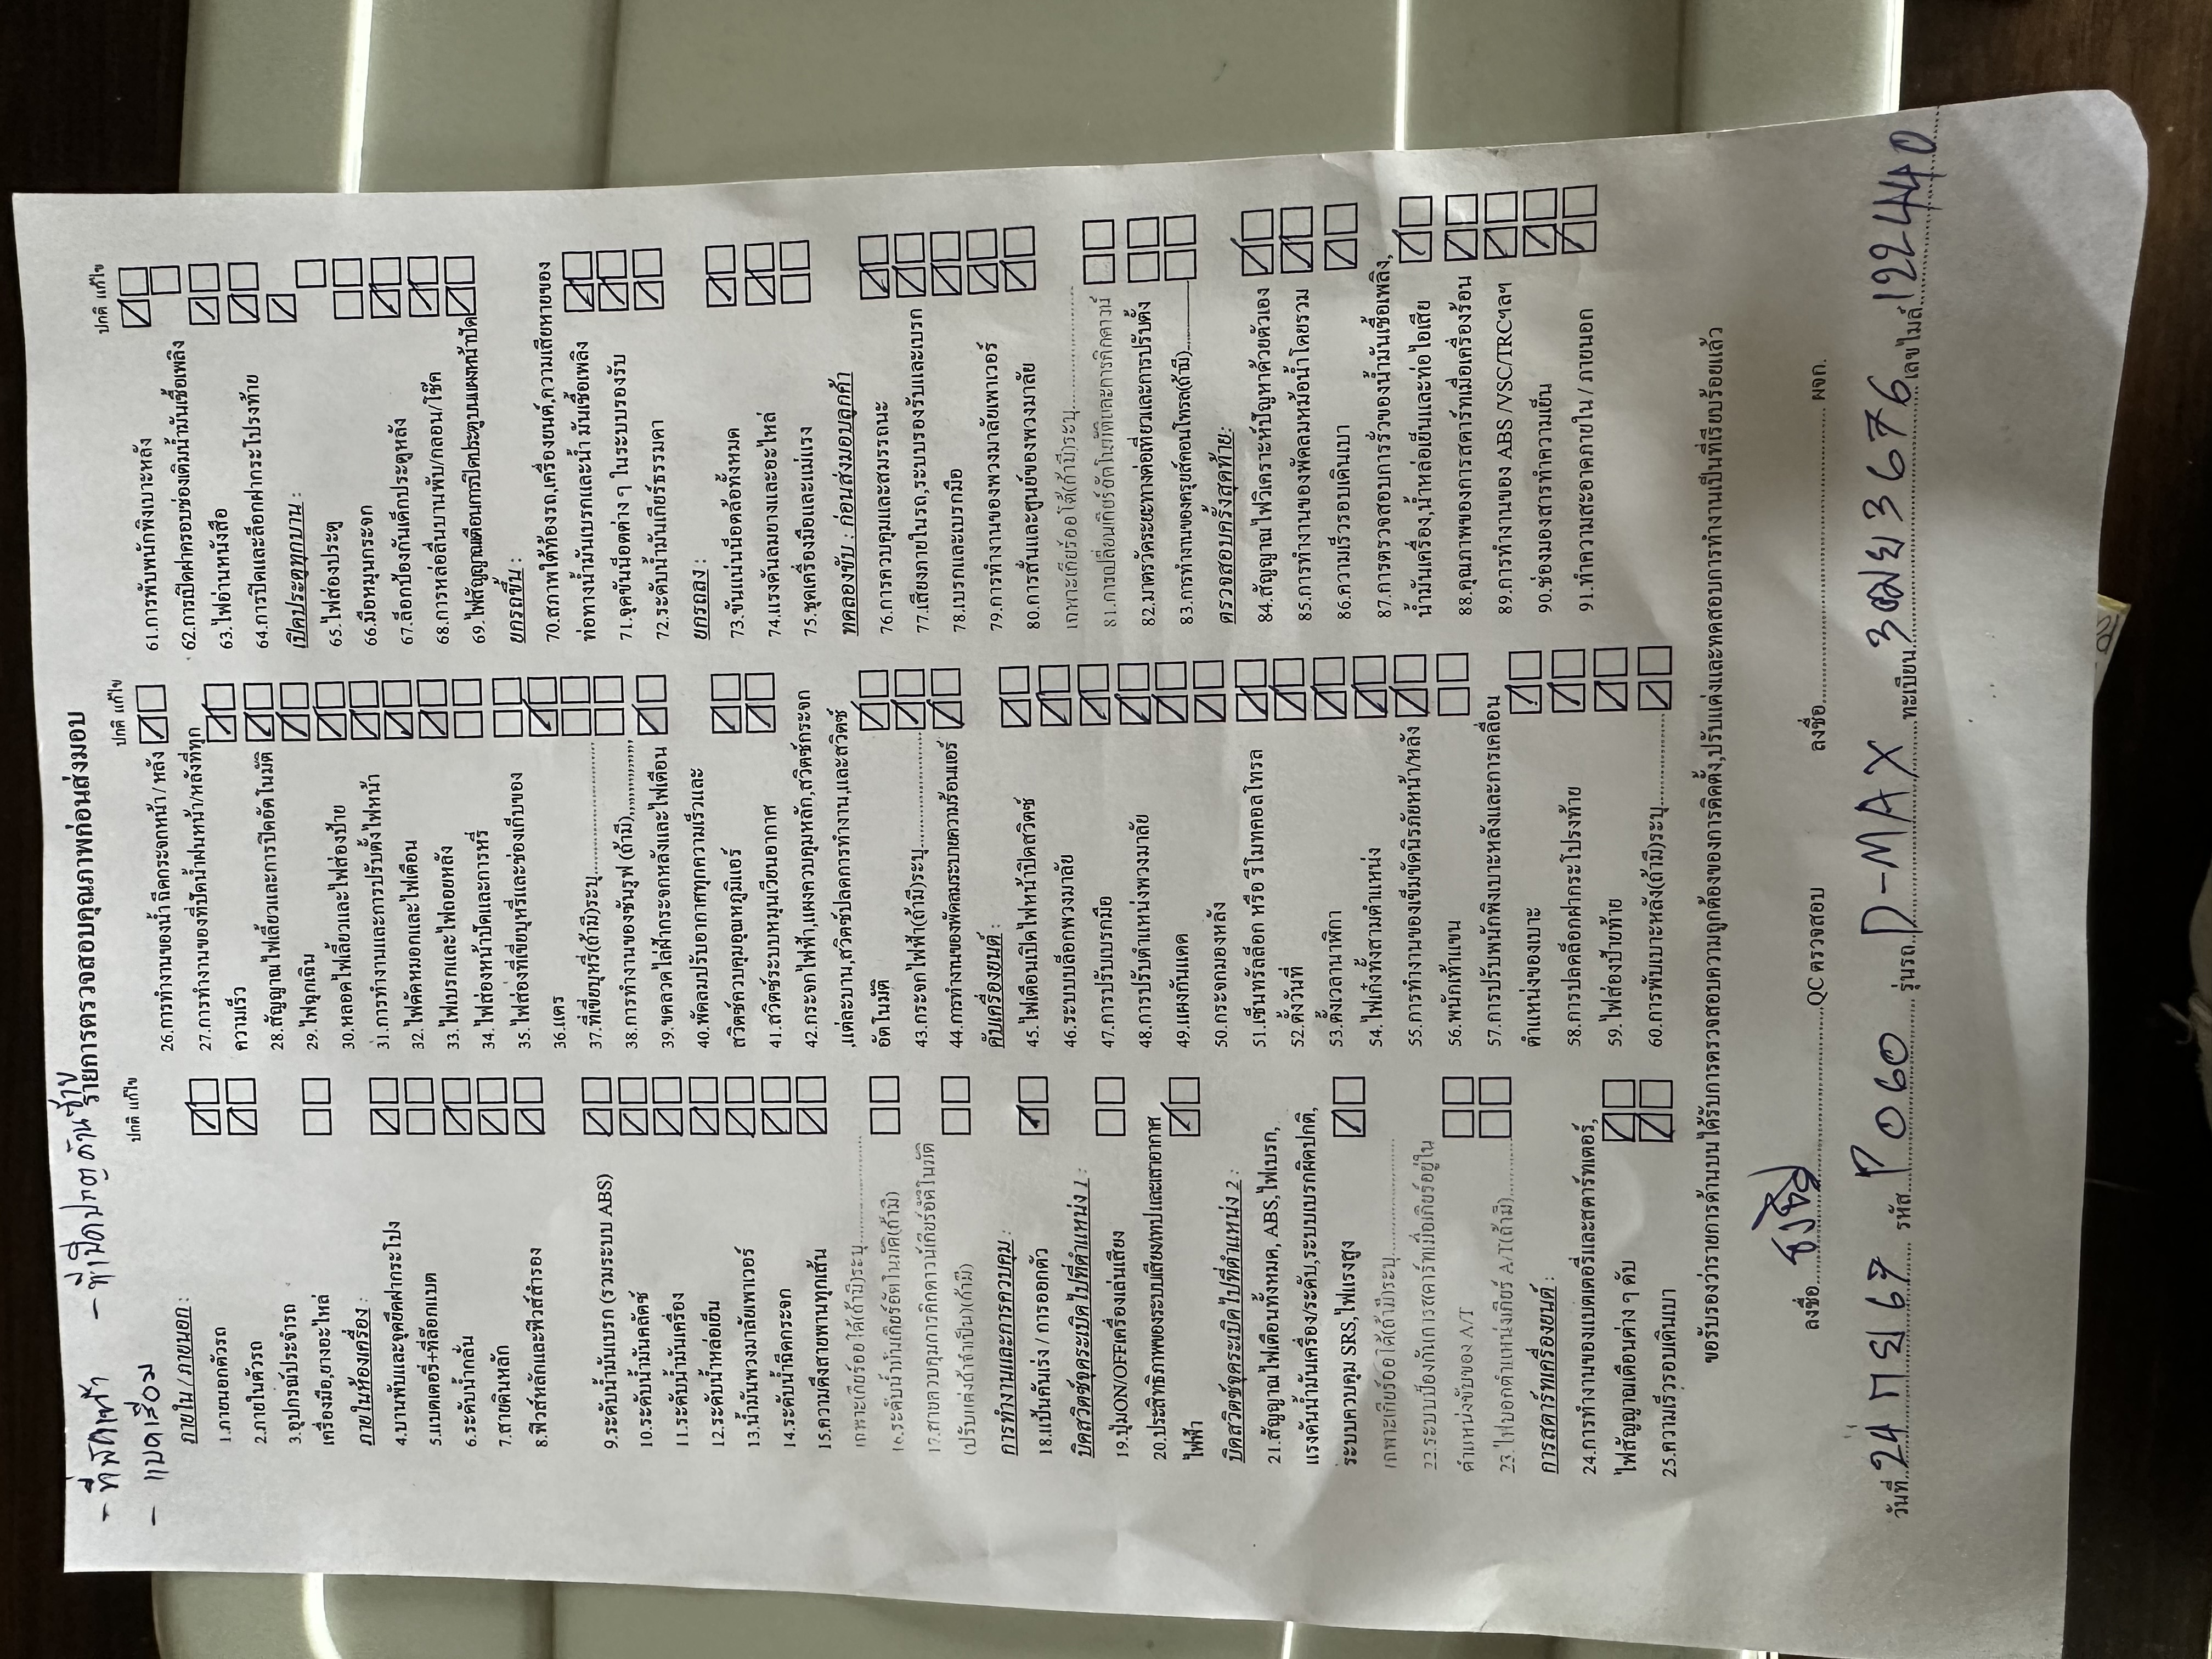 - ที่พักเท้า - ที่เปิดประตูด้านซ้าย
- แบตเสื่อม
รายการตรวจสอบคุณภาพก่อนส่งมอบ
ปกติ แก้ไข
ภายใน / ภายนอก :
1.ภายนอกตัวรถ
2.ภายในตัวรถ
3.อุปกรณ์ประจำรถ
เครื่องมือ,ยางอะไหล่
ภายในห้องเครื่อง :
4.บานพับและจุดยึดฝากระโปง
5.แบตเตอรี่+ที่ล๊อกแบต
6.ระดับน้ำกลั่น
7.สายดินหลัก
8.ฟิวส์หลักและฟิวส์สำรอง
9.ระดับน้ำมันเบรก (รวมระบบ ABS)
10.ระดับน้ำมันคลัตช์
11.ระดับน้ำมันเครื่อง
12.ระดับน้ำหล่อเย็น
13.น้ำมันพวงมาลัยเพาเวอร์
14.ระดับน้ำฉีดกระจก
15.ความตึงสายพานทุกเส้น
เฉพาะเกียร์ออโต้(ถ้ามี)ระบุ..............
16.ระดับน้ำมันเกียร์อัตโนมัติ(ถ้ามี)
17.สายควบคุมการคิกดาวน์เกียร์อัตโนมัติ
(ปรับแต่งถ้าจำเป็น)(ถ้ามี)
การทำงานและการควบคุม :
18.แป้นคันเร่ง / การออกตัว
บิดสวิตช์จุดระเบิดไปที่ตำแหน่ง 1 :
19.ปุ่มON/OFFเครื่องเล่นเสียง
20.ประสิทธิภาพของระบบเสียง/เทปและเสาอากาศ
ไฟฟ้า
บิดสวิตช์จุดระเบิดไปที่ตำแหน่ง 2 :
21.สัญญาณไฟเตือนทั้งหมด, ABS,ไฟเบรก,
แรงดันน้ำมันเครื่อง/ระดับ,ระบบเบรกผิดปกติ,
ระบบควบคุม SRS,ไฟแรงสูง
เฉพาะเกียร์ออโต้(ถ้ามี)ระบุ..............
22.ระบบป้องกันการสตาร์ทเมื่อเกียร์อยู่ใน
ตำแหน่งขับของ A/T
23.ไฟบอกตำแหน่งเกียร์ A/T(ถ้ามี)........
การสตาร์ทเครื่องยนต์ :
24.การทำงานของแบตเตอรี่และสตาร์ทเตอร์,
ไฟสัญญาณเตือนต่าง ๆ ดับ
25.ความเร็วรอบเดินเบา
ปกติ แก้ไข
26.การทำงานของน้ำฉีดกระจกหน้า / หลัง
27.การทำงานของที่ปัดน้ำฝนหน้า/หลังที่ทุก
ความเร็ว
28.สัญญาณไฟเลี้ยวและการปิดอัตโนมัติ
29.ไฟฉุกเฉิน
30.หลอดไฟเลี้ยวและไฟส่องป้าย
31.การทำงานและการปรับตั้งไฟหน้า
32.ไฟตัดหมอกและไฟเตือน
33.ไฟเบรกและไฟถอยหลัง
34.ไฟส่องหน้าปัดและการหรี่
35.ไฟส่องที่เขี่ยบุหรี่และช่องเก็บของ
36.แตร
37.ที่เขี่ยบุหรี่(ถ้ามี)ระบุ..............
38.การทำงานของซันรูฟ (ถ้ามี)..............
39.ขดลวดไล่ฝ้ากระจกหลังและไฟเตือน
40.พัดลมปรับอากาศทุกความเร็วและ
สวิตช์ควบคุมอุณหภูมิแอร์
41.สวิตช์ระบบหมุนเวียนอากาศ
42.กระจกไฟฟ้า,แผงควบคุมหลัก,สวิตช์กระจก
,แต่ละบาน,สวิตช์ปลดการทำงาน,และสวิตช์
อัตโนมัติ
43.กระจกไฟฟ้า(ถ้ามี)ระบุ..............
44.การทำงานของพัดลมระบายความร้อนแอร์
ดับเครื่องยนต์ :
45.ไฟเตือนเปิดไฟหน้าปิดสวิตช์
46.ระบบบล็อกพวงมาลัย
47.การปรับเบรกมือ
48.การปรับตำแหน่งพวงมาลัย
49.แผงกันแดด
50.กระจกมองหลัง
51.เซ็นทรัลล็อก หรือ รีโมทคอลโทรล
52.ตั้งวันที่
53.ตั้งเวลานาฬิกา
54.ไฟเก๋งทั้งสามตำแหน่ง
55.การทำงานของเข็มขัดนิรภัยหน้า/หลัง
56.พนักเท้าแขน
57.การปรับพนักพิงเบาะหลังและการเคลื่อน
ตำแหน่งของเบาะ
58.การปลดล็อกฝากระโปรงท้าย
59.ไฟส่องป้ายท้าย
60.การพับเบาะหลัง(ถ้ามี)ระบุ..............
ปกติ แก้ไข
61.การพับพนักพิงเบาะหลัง
62.การปิดฝาครอบช่องเติมน้ำมันเชื้อเพลิง
63.ไฟอ่านหนังสือ
64.การปิดและล็อกฝากระโปรงท้าย
เปิดประตูทุกบาน :
65.ไฟส่องประตู
66.มือหมุนกระจก
67.ล็อกป้องกันเด็กประตูหลัง
68.การหล่อลื่นบานพับ/กลอน/โช๊ค
69.ไฟสัญญาณเตือนการปิดประตูบนแผงหน้าปัด
ยกรถขึ้น :
70.สภาพใต้ท้องรถ,เครื่องยนต์,ความเสียหายของ
ท่อทางน้ำมันเบรกและน้ำ มันเชื้อเพลิง
71.จุดขันน็อตต่าง ๆ ในระบบรองรับ
72.ระดับน้ำมันเกียร์ธรรมดา
ยกรถลง :
73.ขันแน่นน็อตล้อทั้งหมด
74.แรงดันลมยางและอะไหล่
75.ชุดเครื่องมือและแม่แรง
ทดลองขับ : ก่อนส่งมอบลูกค้า
76.การควบคุมและสมรรถนะ
77.เสียงภายในรถ,ระบบรองรับและเบรก
78.เบรกและเบรกมือ
79.การทำงานของพวงมาลัยเพาเวอร์
80.การสั่นและศูนย์ของพวงมาลัย
เฉพาะเกียร์ออโต้(ถ้ามี)ระบุ..............
81.การเปลี่ยนเกียร์อัตโนมัติและการคิกดาวน์
82.มาตรวัดระยะทางต่อเที่ยวและการปรับตั้ง
83.การทำงานของครุยส์คอนโทรล(ถ้ามี)..............
ตรวจสอบครั้งสุดท้าย:
84.สัญญาณไฟวิเคราะห์ปัญหาด้วยตัวเอง
85.การทำงานของพัดลมหม้อน้ำโดยรวม
86.ความเร็วรอบเดินเบา
87.การตรวจสอบการรั่วของน้ำมันเชื้อเพลิง,
น้ำมันเครื่อง,น้ำหล่อเย็นและท่อไอเสีย
88.คุณภาพของการสตาร์ทเมื่อเครื่องร้อน
89.การทำงานของ ABS /VSC/TRCฯลฯ
90.ช่องมองสารทำความเย็น
91.ทำความสะอาดภายใน / ภายนอก
ขอรับรองว่ารายการด้านบนได้รับการตรวจสอบความถูกต้องของการติดตั้ง,ปรับแต่งและทดสอบการทำงานเป็นที่เรียบร้อยแล้ว
ลงชื่อ..............QC ตรวจสอบ ลงชื่อ.............. ผจก.
วันที่ 24 กย 67 รหัส P060 รุ่นรถ D-MAX ทะเบียน 3ฒย3676 เลขไมล์ 122440